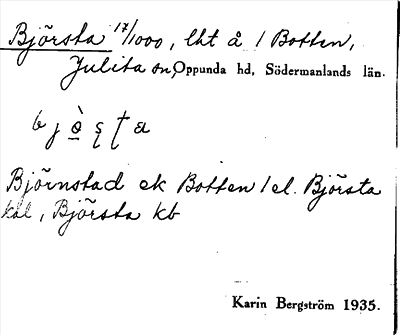 Björsta 17/1000, lht å / Botten,
Julita sn, Oppunda hd, Södermanlands län.
Björnstad ek Botten / el. Björsta
kbl, Björsta kb
Karin Bergström 1935.